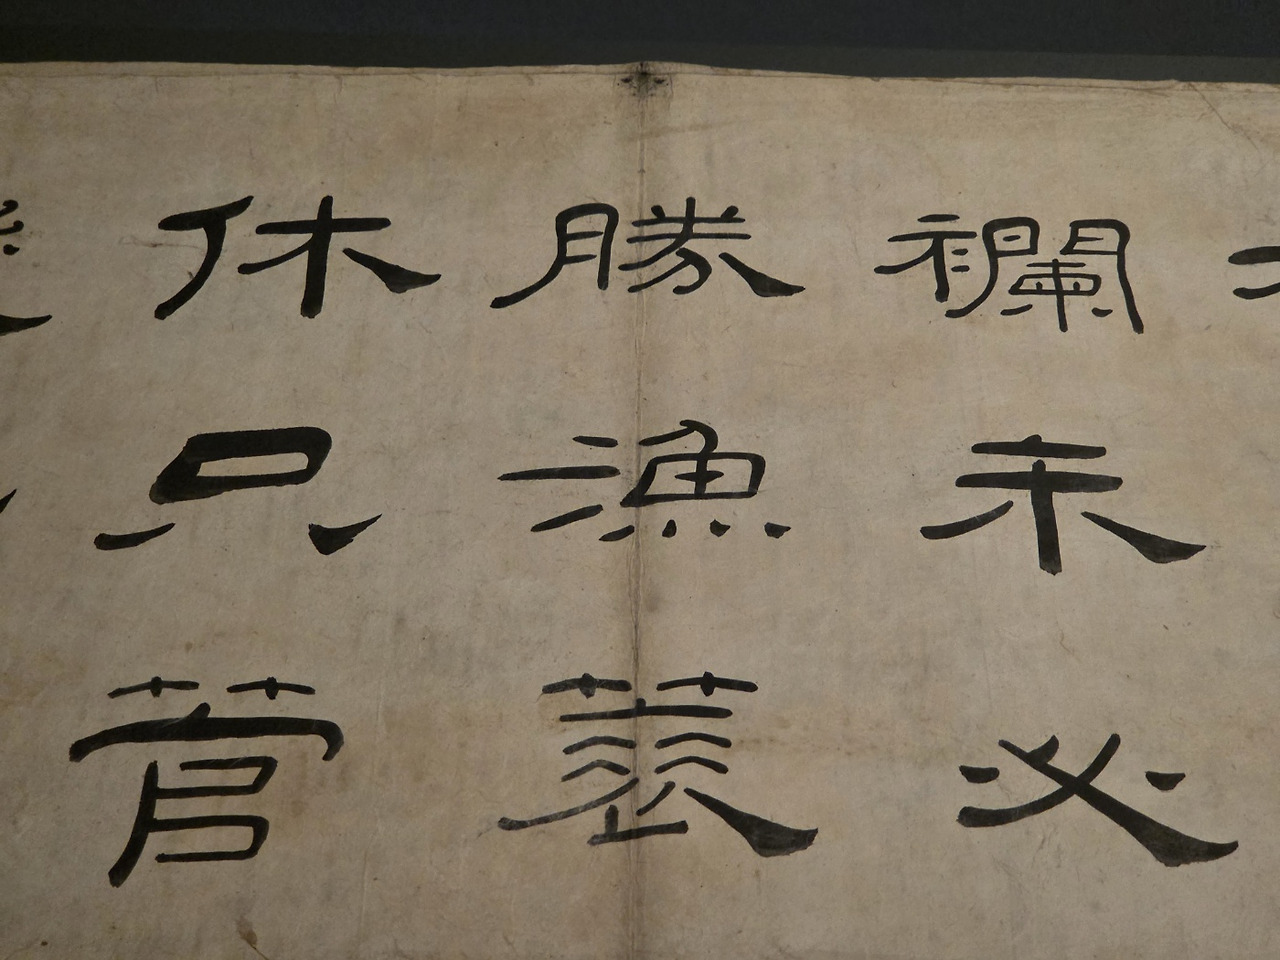 襴未必
勝漁蓑
休只管